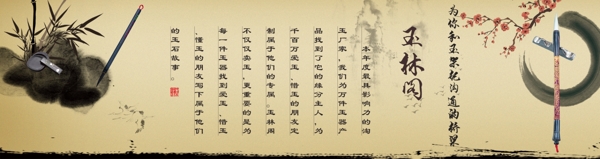 为你和玉架起沟通的桥梁
玉林阁
本年度最具影响力的淘
玉厂家，我们为万件玉器产
品找到了它的缘分主人，为
千百万爱玉、惜玉的朋友定
制属于他们的专属。玉林阁
不仅仅卖玉，更重要的是为
每一件玉器找到爱玉、惜玉
、懂玉的朋友写下属于他们
的玉石故事。